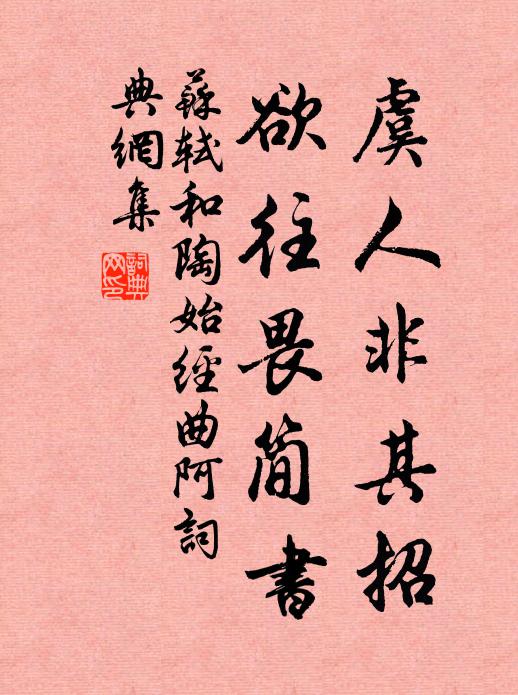 虞人非其招
欲往畏簡書
蘇軾和陶始經曲阿詞
典網集
詞典網印